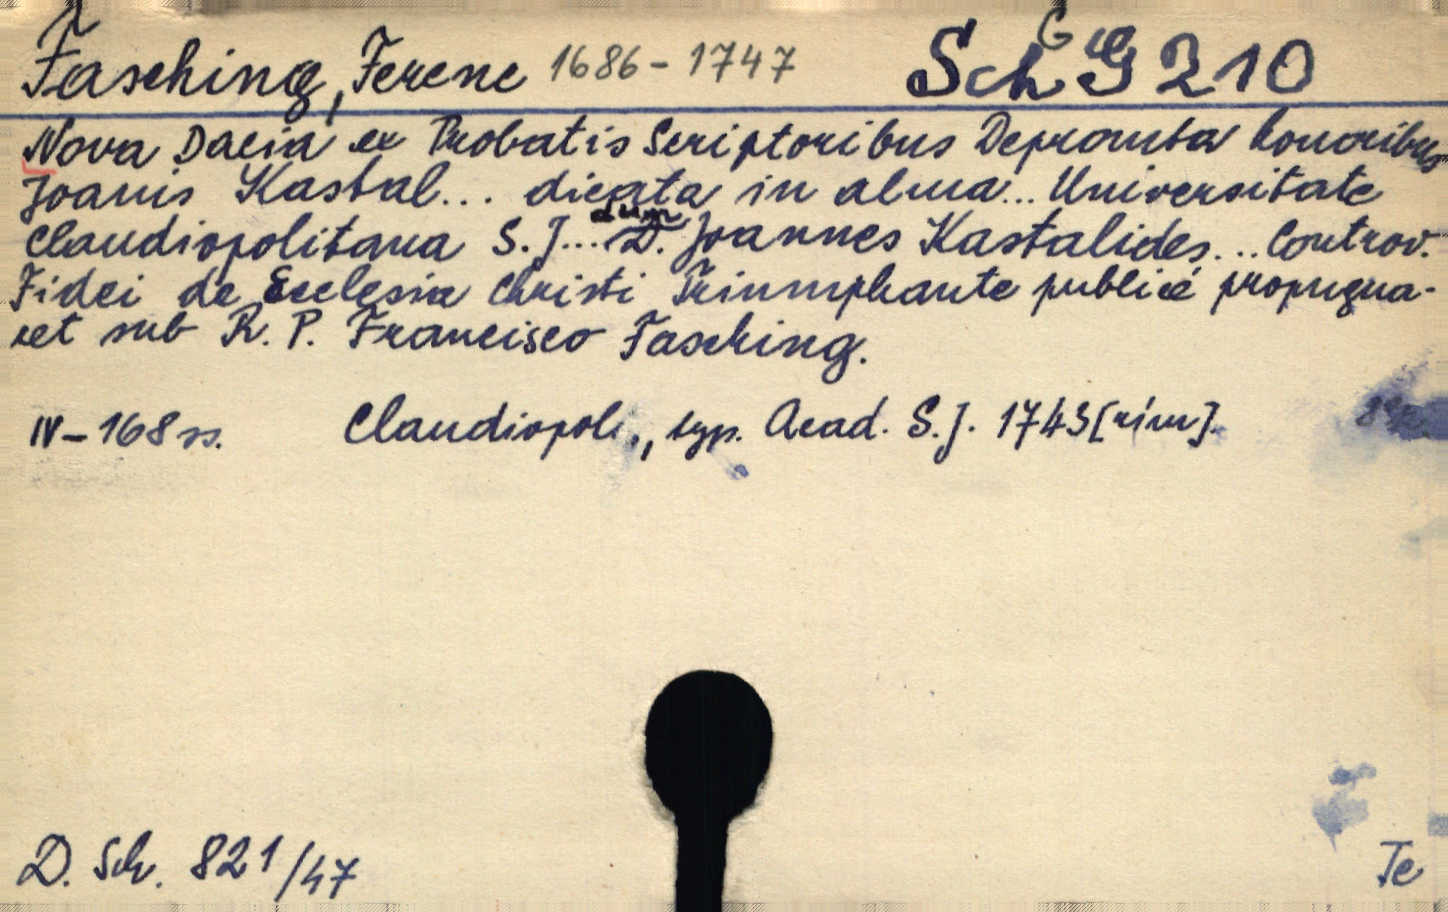 Fasching, Ferenc 1686-1747 Sch G 210
Nova Dacia ex Probatis Scriptoribus Deprompta honoribus
Joanis Kastal... dicata in alma... Universitate
Claudiopolitana S. J... dum D. Joannes Kastalides... Controv.
Fidei de Ecclesia Christi Triumphante publicé propugna-
ret sub R. P. Francisco Fasching.
IV-168 ss. Claudiopoli, typ. Acad. S. J. 1743 [rim].
D. Sch. 821/47
Te